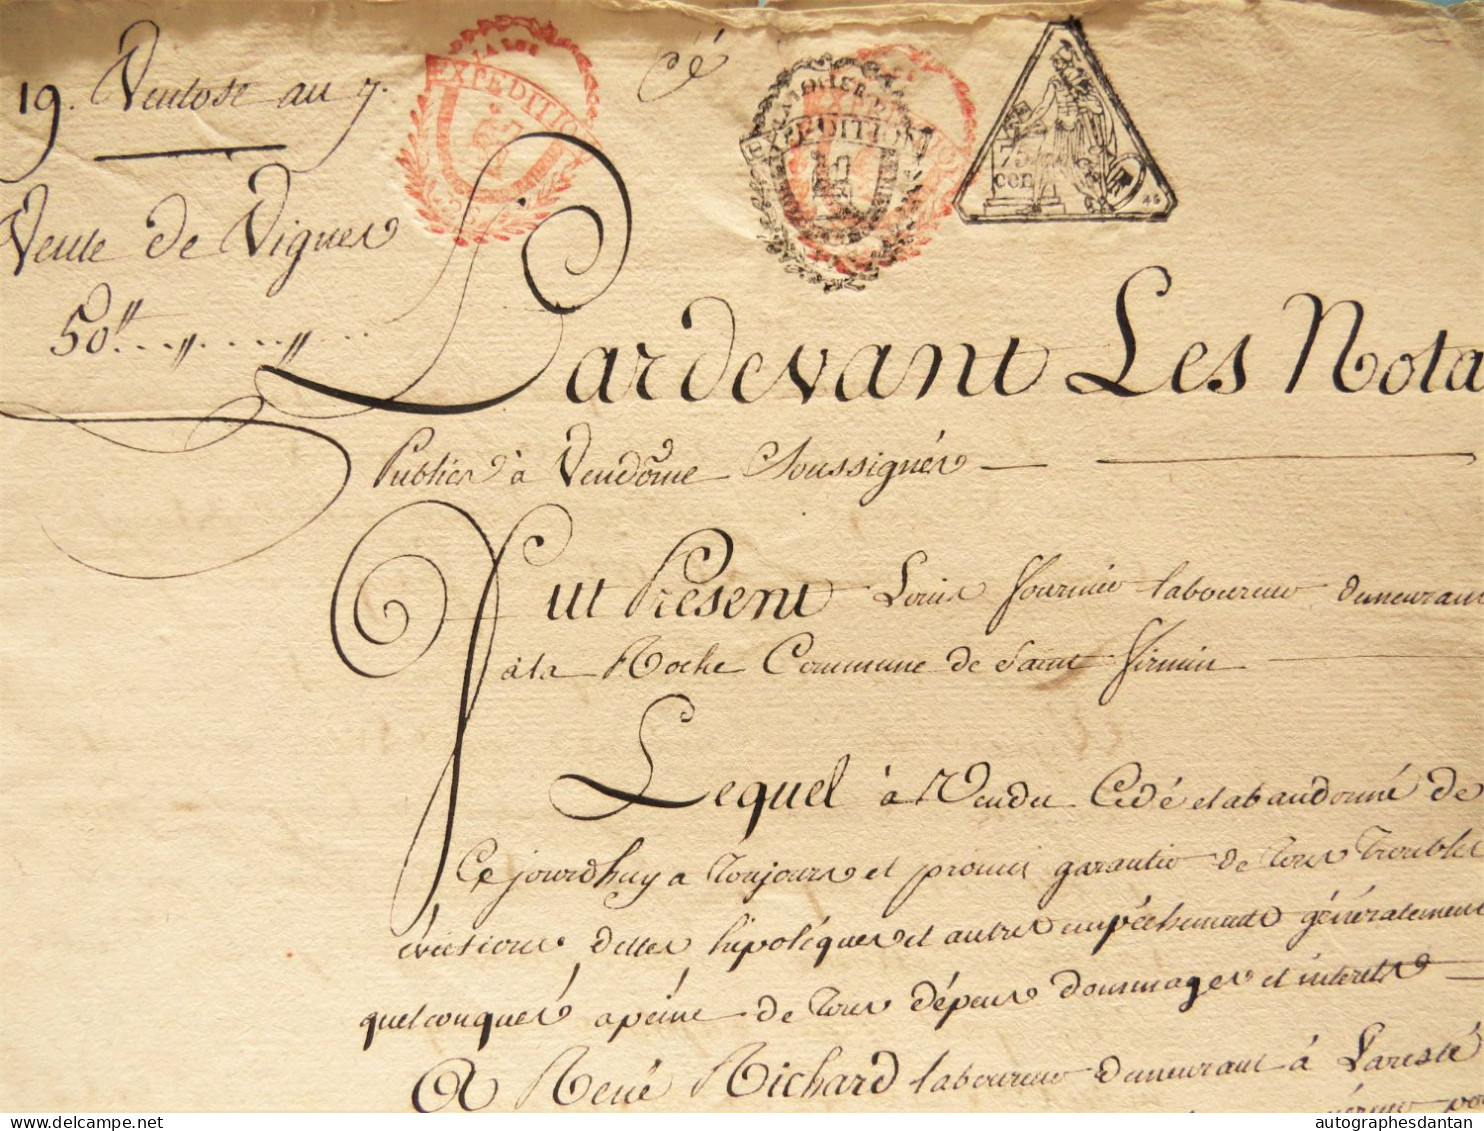 19. Ventose an 7.
cé
EXPEDITION
EXPEDITION
75
cen
Vente de Vignes
50
Pardevant Les Nota
Publics à Vendôme Soussignés
Fut Présent Louis Fournier laboureur demeurant
à la Roche Commune de Saint Firmin
Lequel à Vendu Cedé et abandonné de
Ce jourdhuy a Toujours et promis garantir de tous Troubles
évictions dettes hipotéques et autres empéchements généralement
quelconques a peine de tous dépens dommages et interets
A René Richard laboureur demeurant à Lareste
autographesdantan.com